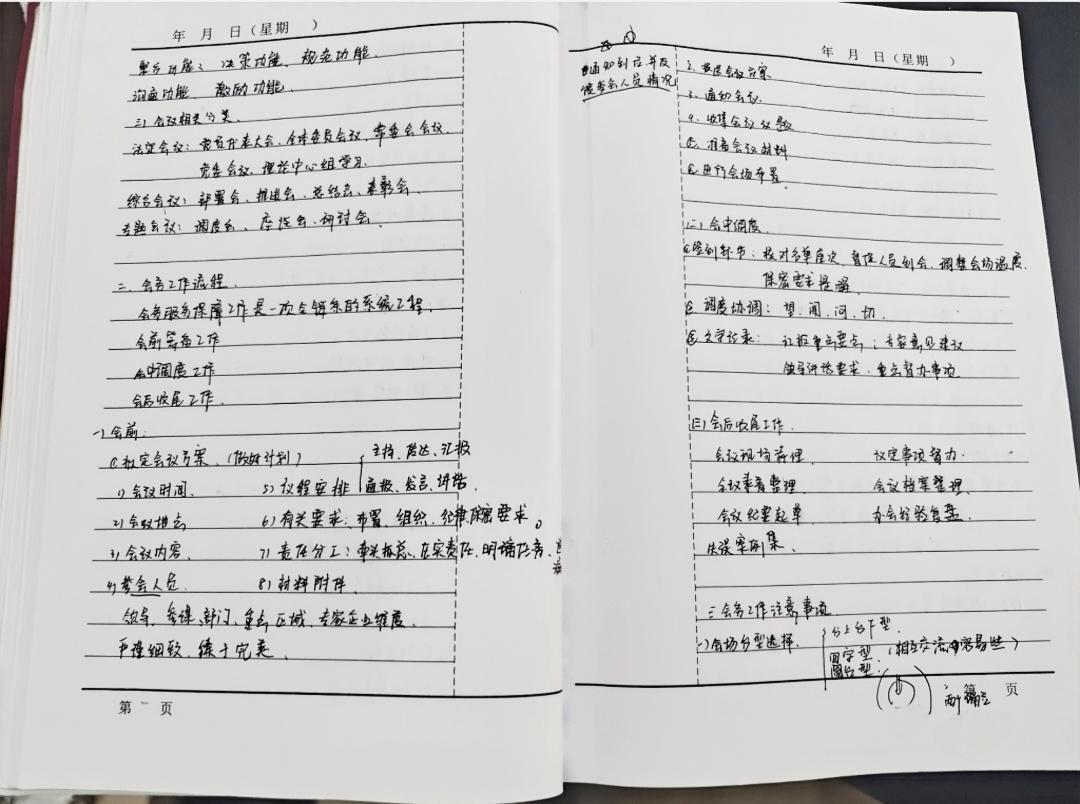 年 月 日（星期 ）
聚合功能、决策功能、规范功能、
沟通功能、激励功能、
三)会议相关分类、
法定会议：党员代表大会、全体委员会议、常委会会议、
党委会议、理论中心组学习、
综合会议：部署会、推进会、总结会、表彰会、
专题会议：调度会、座谈会、研讨会、
二、会务工作流程、
会务服务保障工作是一次全链条的系统工程、
会前筹备工作
会中调度工作
会后收尾工作、
一)会前：
①拟定会议方案、(做好计划)
主持、传达、汇报
1)会议时间、 5)议程安排 通报、发言、讲话、
2)会议地点 6)有关要求：布置、组织、纪律、保密要求。
3)会议内容、 7)责任分工：牵头抓总、压实责任、明确任务、
4)参会人员 8)材料附件、
领导、参谋、部门、重点区域、专家企业维度、
严谨细致、臻于完美、
第 页
年 月 日（星期 ）
通知到位并反
馈参会人员情况
2、报送会议方案
3、通知会议、
4、收集会议议题
5、准备会议材料
6、进行会场布置、
(二)会中调度、
①签到环节：核对名单座次、督促人员到会、调整会场温度、
保密要求提醒、
②调度协调：望、闻、问、切、
③文字记录：记振重点要点；专家意见建议
领导讲话要求、重点督办事项
(三)会后收尾工作、
会议现场清理、 议定事项督办、
会议录音整理、 会议档案整理、
会议纪要起草 办会经验复盘、
失误案例集、
三 会务工作注意事项
一)会场台型选择、
台上台下型、
回字型、(相互交流 容易些)
圆台型：
第 页